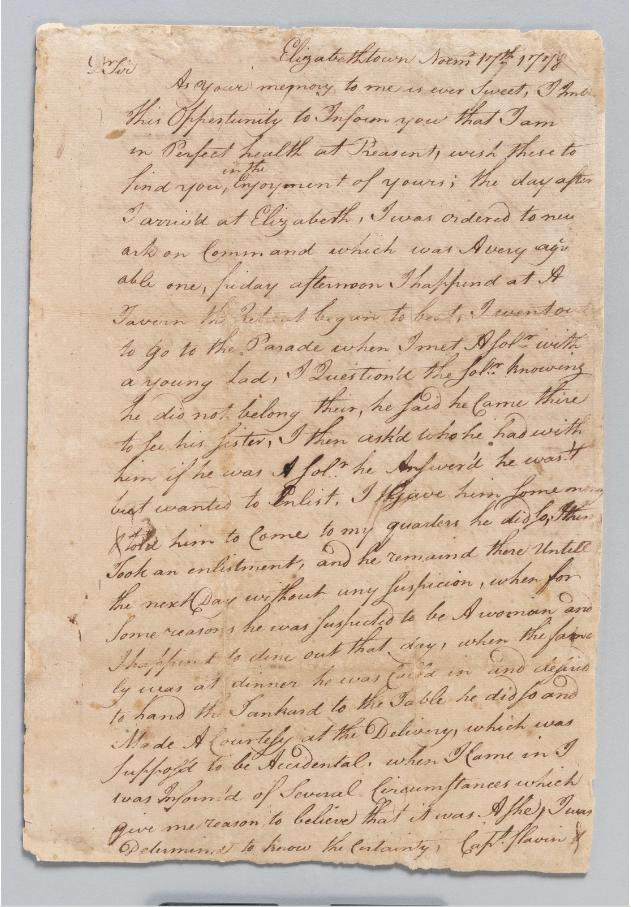 Elizabethtown Novmr 17th 1778
Dr Sir
As your memory to me is ever Sweet, I Imb
this Oppertunity to Inform you that I am
in Perfect health at Preasent, wish these to
find you, in the Enjoyment of yours; the day after
I arriv'd at Elizabeth, I was ordered to new
ark on Command which was A very agre
able one, friday afternoon I happend at A
Tavern the Retreat began to beat, I went out
to go to the Parade when I met A Solr with
a young Lad, I Question'd the Solr knowing
he did not belong their, he said he Came there
to See his Sister, I then ask'd who he had with
him if he was A Solr he Answer'd he was't
but wanted to Enlist, I Gave him Some money
& told him to Come to my quarters he did So, I then
Took an enlistment, and he remaind there Untill
the next Day without any Suspicion, when for
Some reasons he was Suspected to be A woman and
I happent to dine out that day, when the fame
ly was at dinner he was Call'd in and desired
to hand the Tankard to the Table he did So and
Made A Courtesy at the Delivery, which was
Suppos'd to be Accidental, when I Came in I
was Inform'd of Several Circumstances which
give me reason to believe that it was A She, I was
Determined to know the Certainty, Capt. flavin &